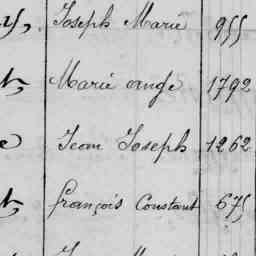 Joseph Marie 955
Marie ange 1792
Jean Joseph 1262
François Constant 675